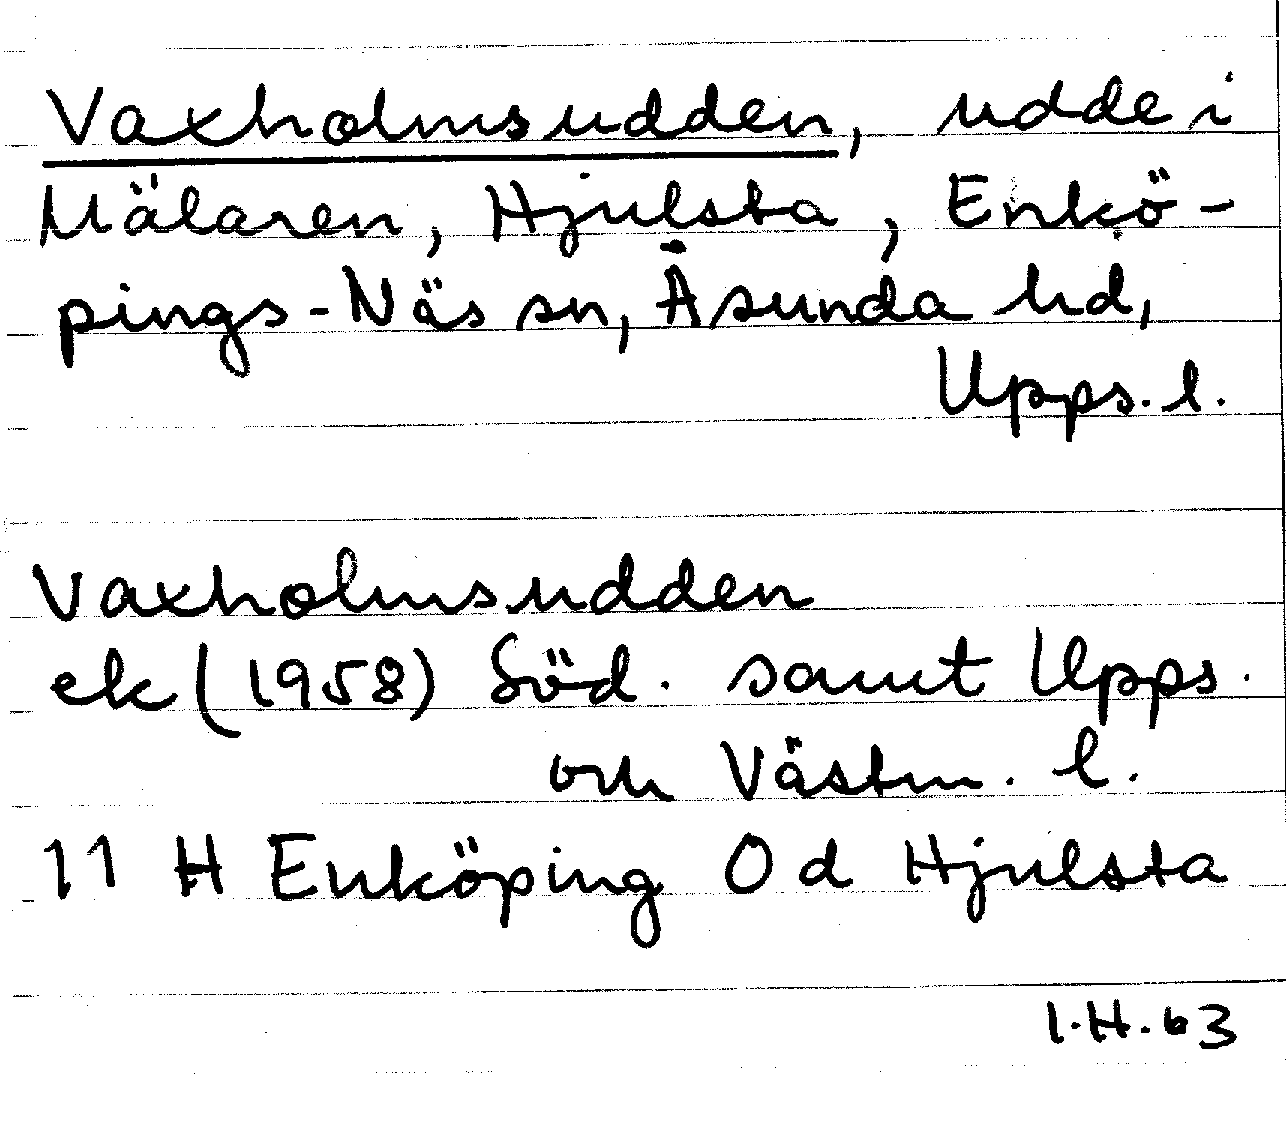 Vaxholmsudden, udde i
Mälaren, Hjulsta, Enkö-
pings-Näs sn, Åsunda hd,
Upps. l.
Vaxholmsudden
ek (1958) Söd. samt Upps.
och Västm. l.
11 H Enköping O d Hjulsta
I.H.63